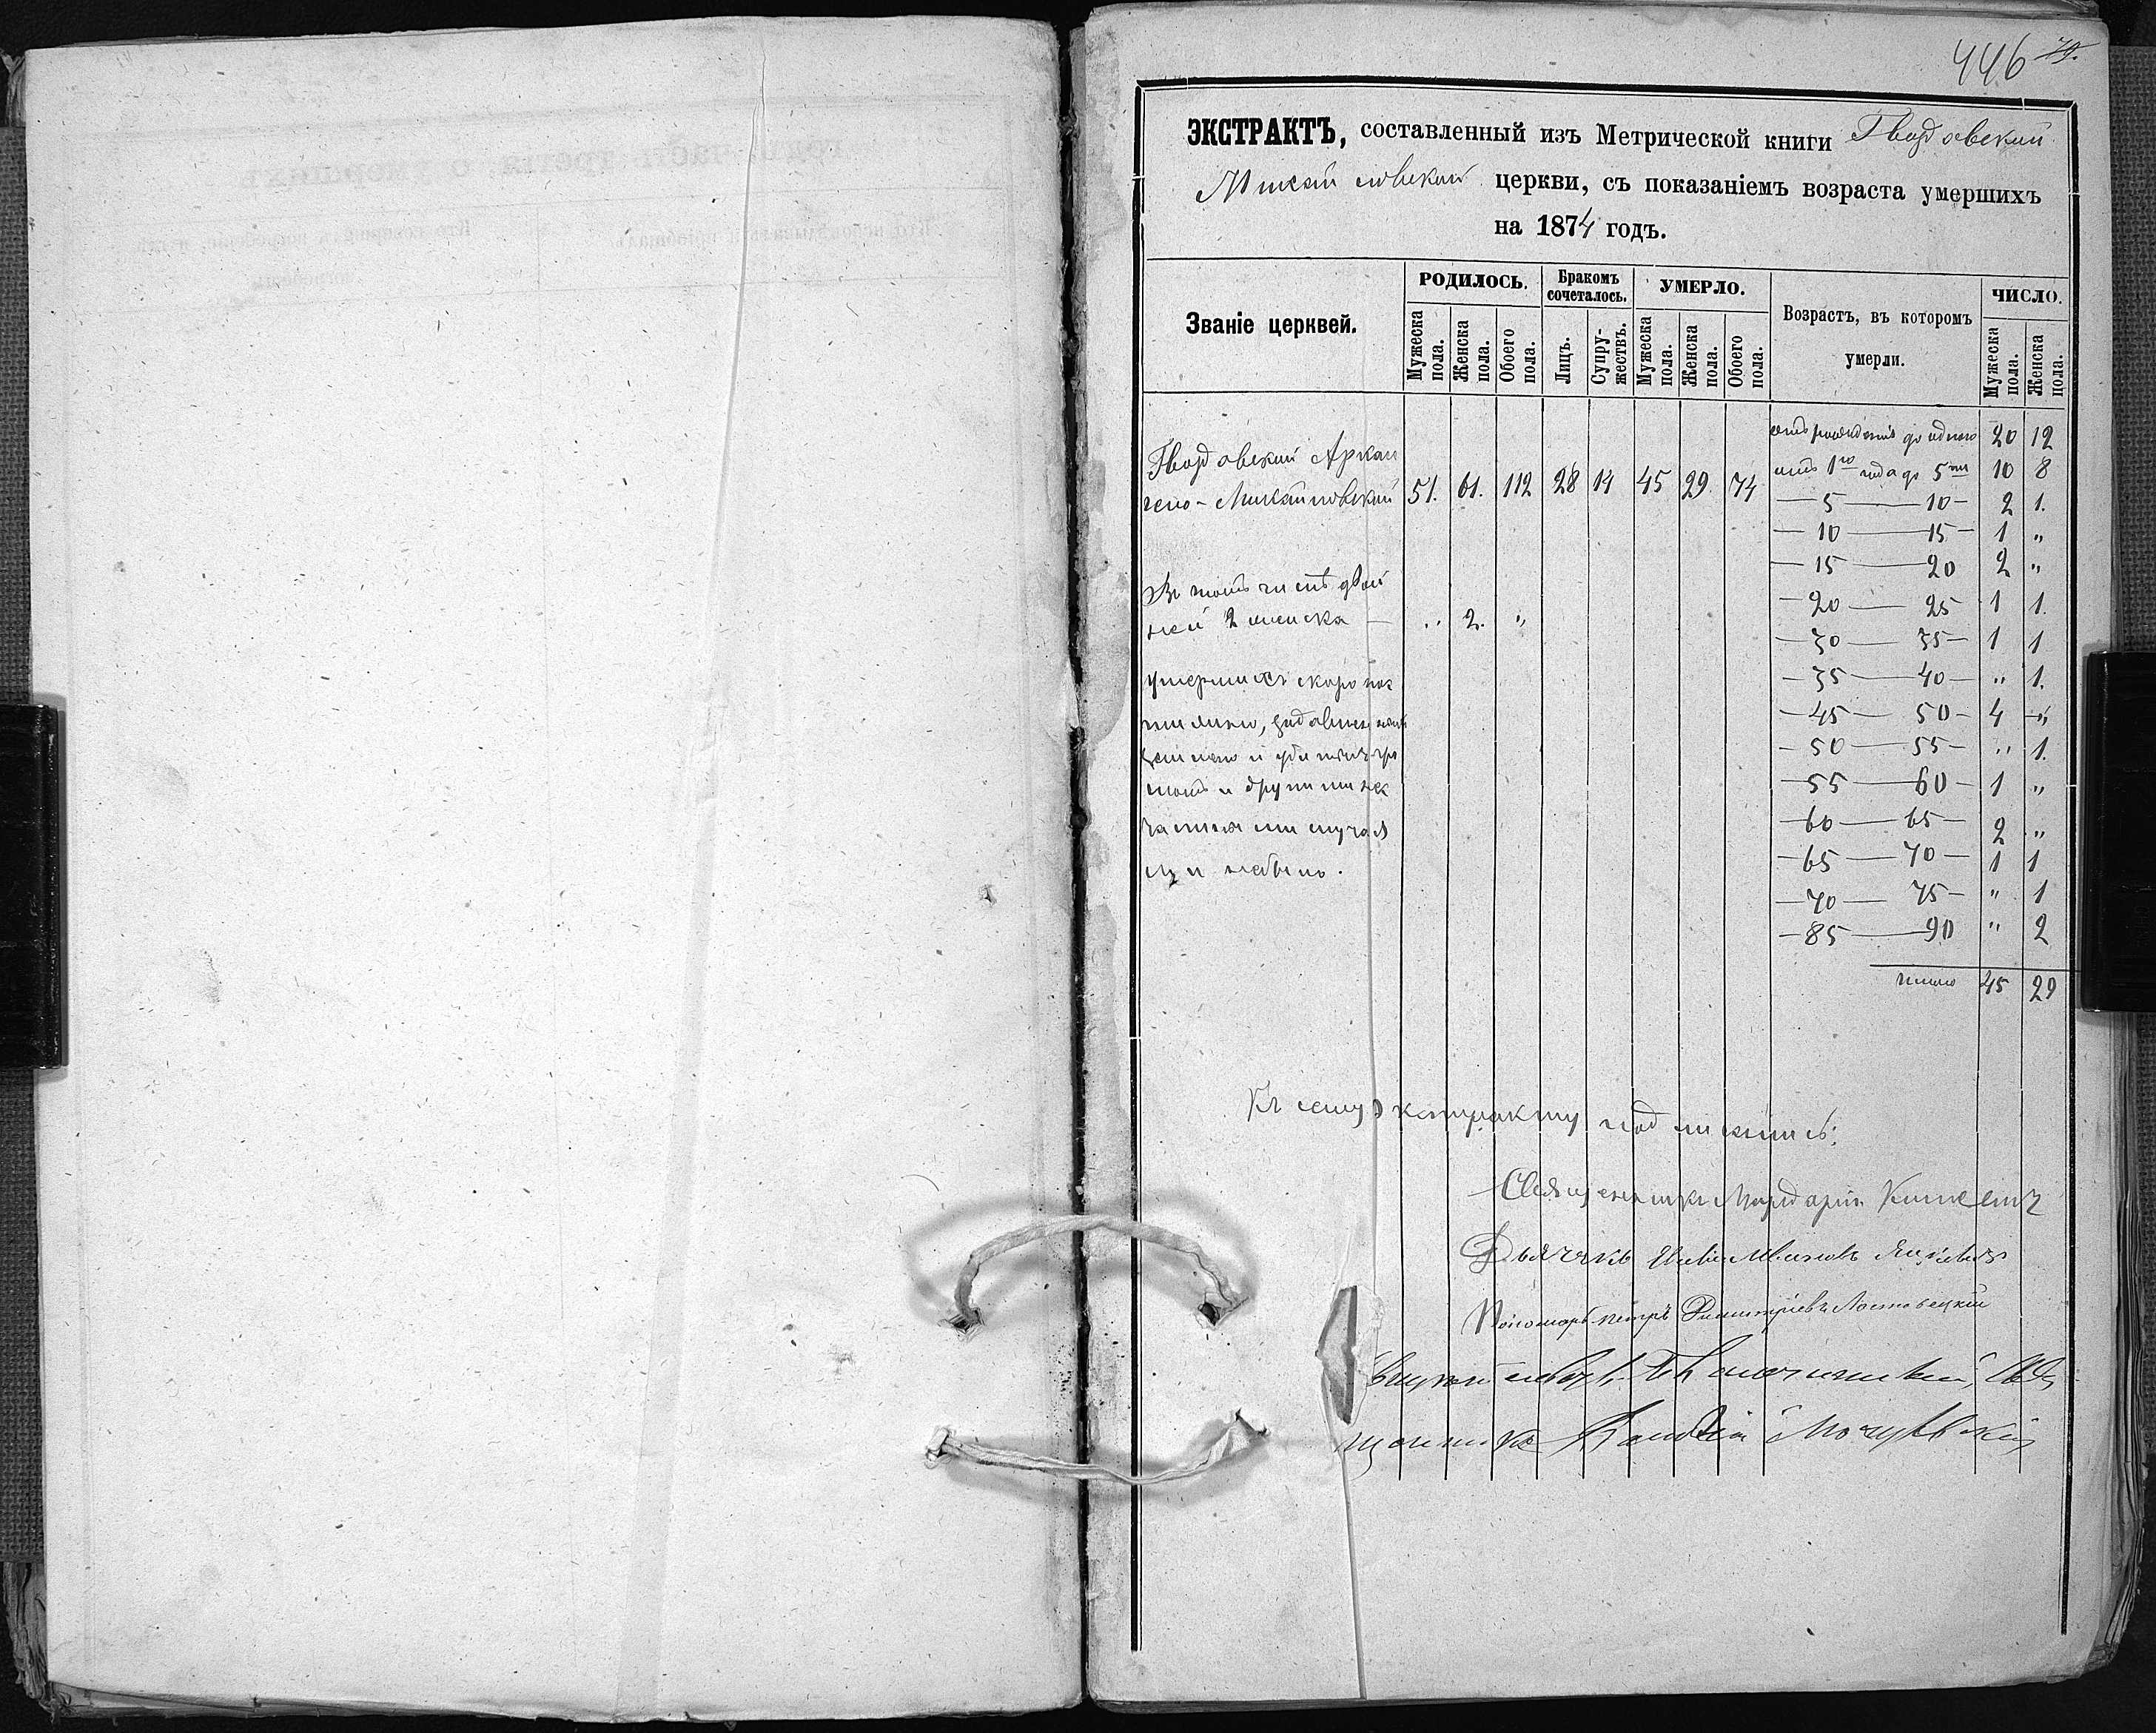 446 79.
ЭКСТРАКТЪ, составленный изъ Метрической книги Гвоздовской
Михайловской церкви, съ показаніемъ возраста умершихъ
на 1874 годъ.
Званіе церквей.
РОДИЛОСЬ.
Бракомъ сочеталось.
УМЕРЛО.
Возрастъ, въ которомъ умерли.
ЧИСЛО.
Мужеска пола.
Женска пола.
Обоего пола.
Лицъ.
Супружествъ.
Мужеска пола.
Женска пола.
Обоего пола.
Мужеска пола.
Женска пола.
Гвоздовской Архан
гело-Михайловской 51. 61. 112 28 14 45 29. 74
Въ томъ числѣ двой
ней 2 женска — „ 2. „
умершихъ скоро пос
и другими нес
частными случая
ми небыло.
отъ рожденія до одного 20 12
отъ 1го года до 5ти 10 8
— 5 — 10 — 2 1.
— 10 — 15 — 1 „
— 15 — 20 2 „
— 20 — 25 1 1.
— 30 — 35 — 1 1
— 35 — 40 — „ 1.
— 45 — 50 — 4 — „
— 50 — 55 — „ 1.
— 55 — 60 — 1 „
— 60 — 65 — 2 „
— 65 — 70 — 1 1
— 70 — 75 — „ 1
— 85 — 90 „ 2
итого 45 29
Къ сему экстракту подписались:
Священникъ Мардарій
Дьячекъ
Пономарь Петръ Димитріевъ
щенникъ